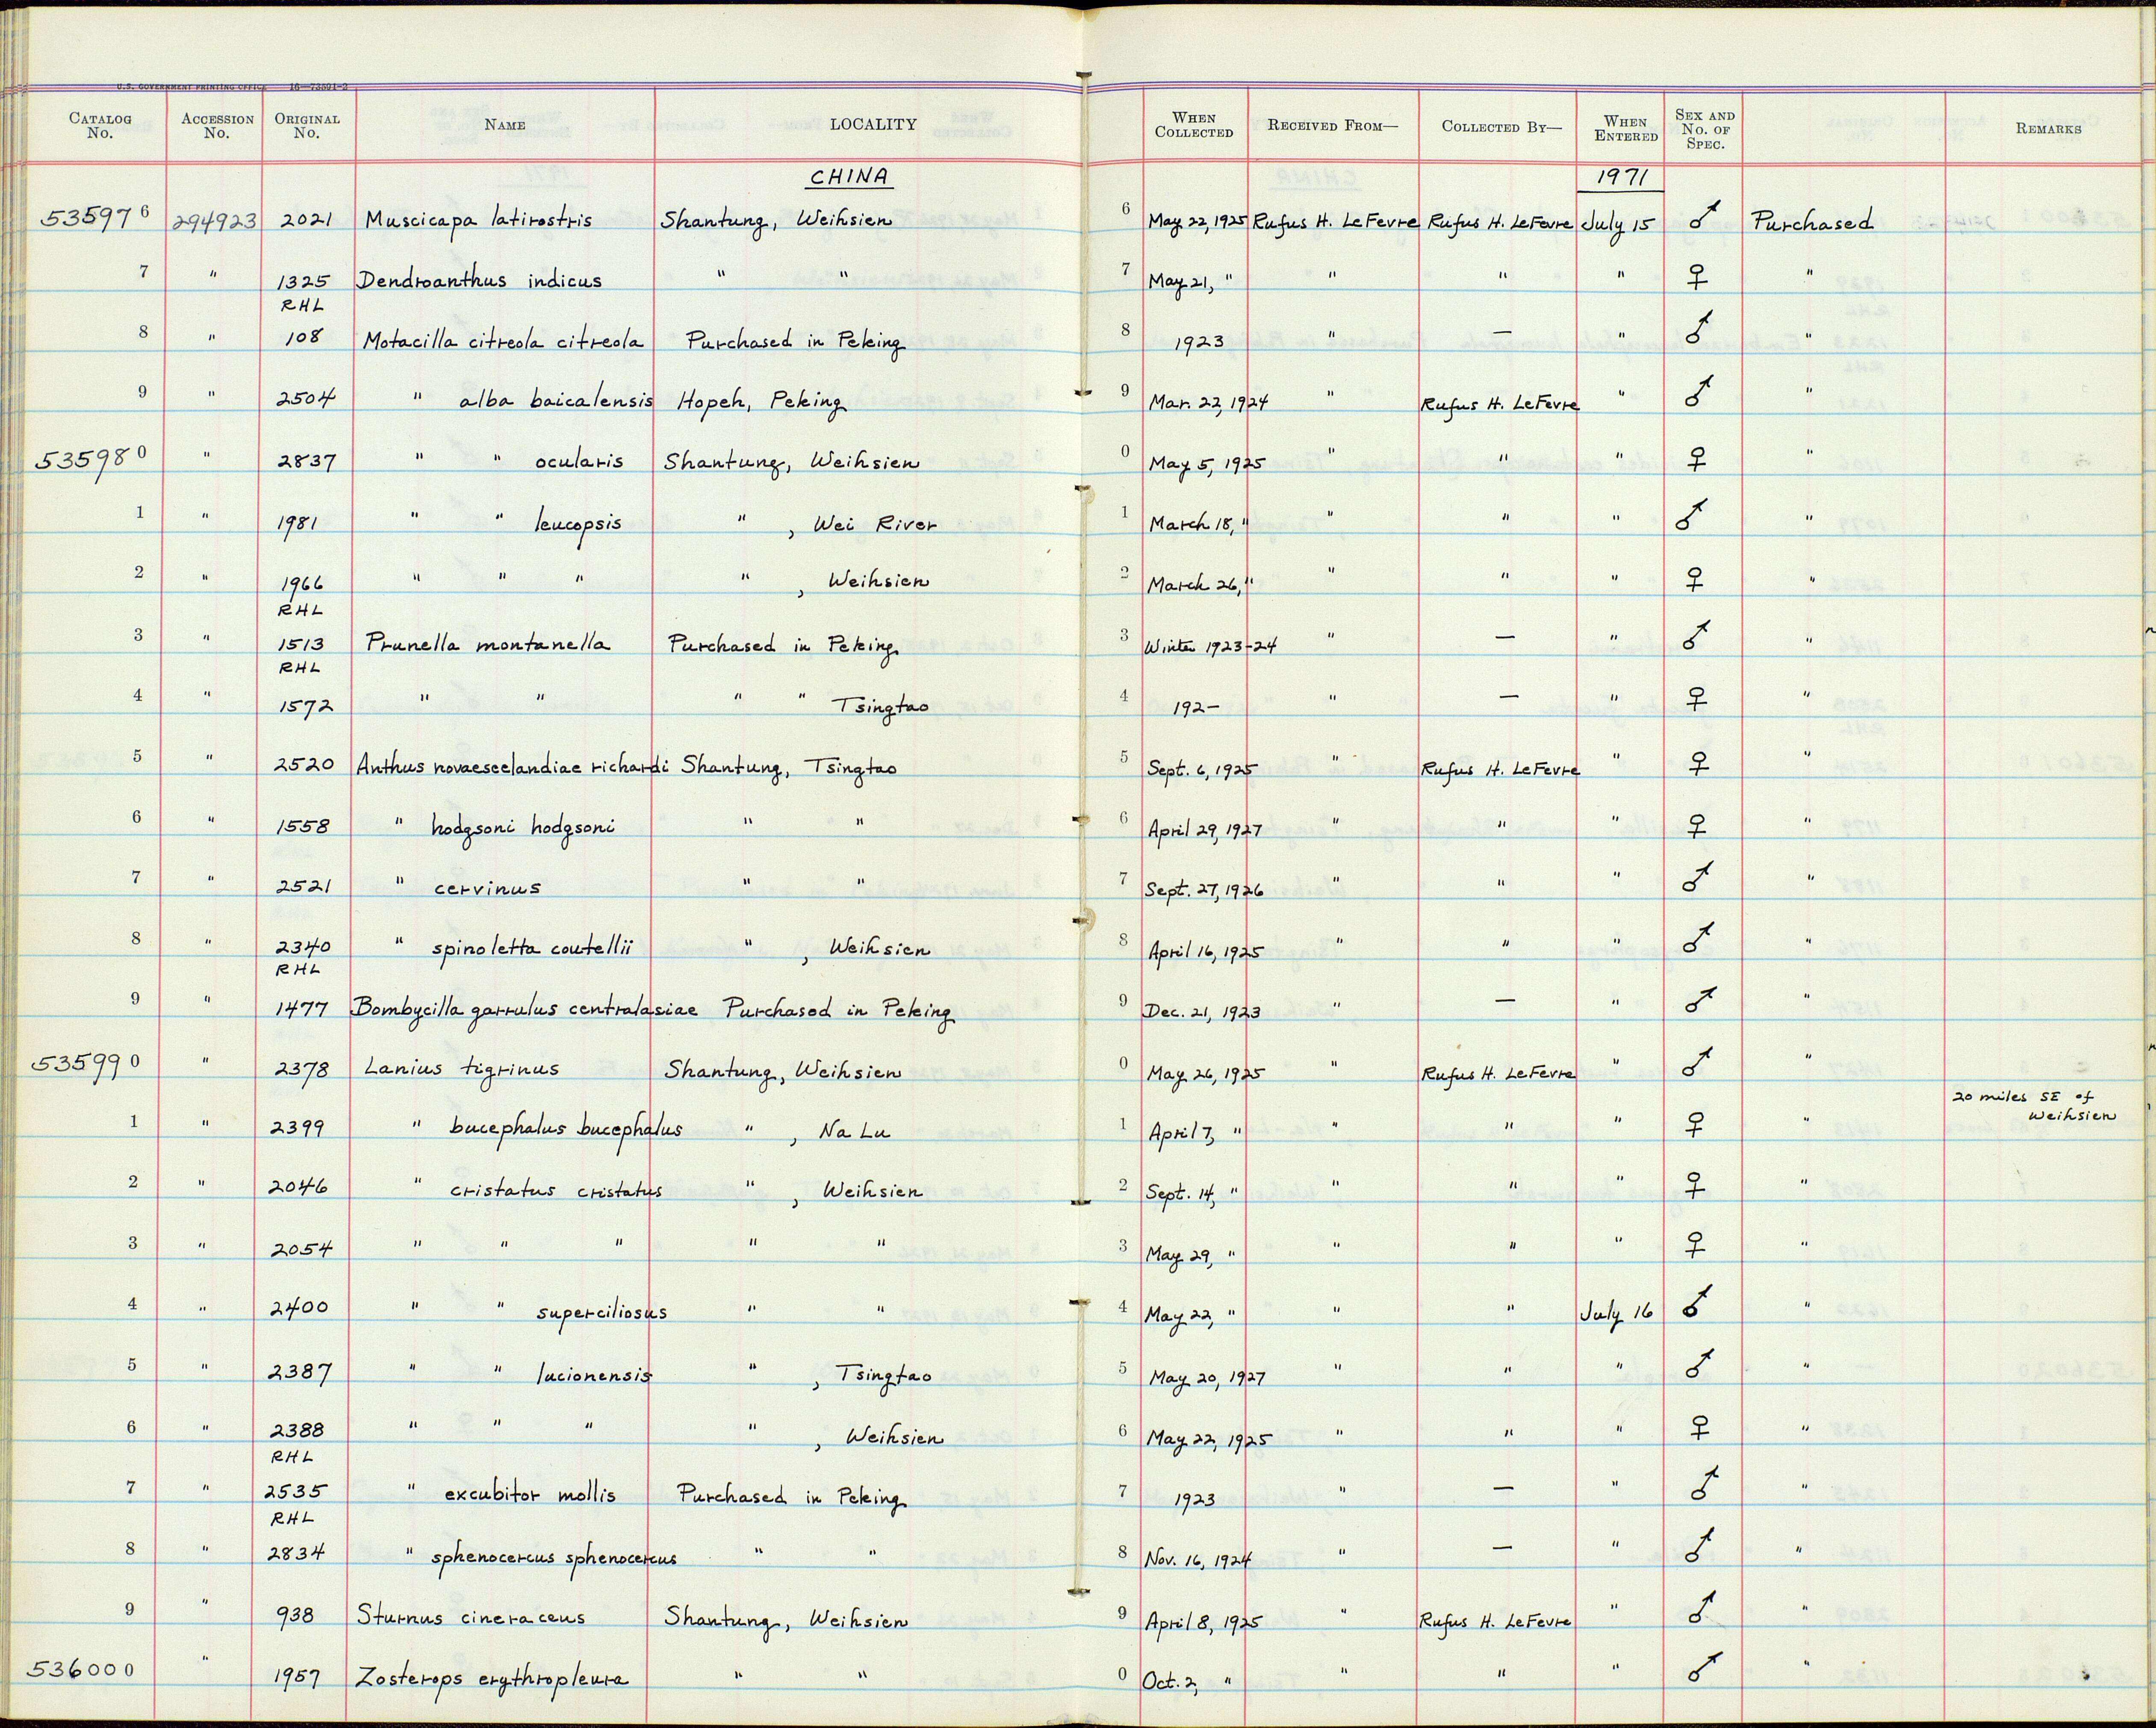 U.S. GOVERNMENT PRINTING OFFICE 16—73501-2
CATALOG No. ACCESSION No. ORIGINAL No. NAME LOCALITY WHEN COLLECTED RECEIVED FROM— COLLECTED BY— WHEN ENTERED SEX AND No. OF SPEC. REMARKS
CHINA 1971
535976 294923 2021 Muscicapa latirostris Shantung, Weihsien 6 May 22, 1925 Rufus H. LeFevre Rufus H. LeFevre July 15 ♂ Purchased
7 " 1325 Dendroanthus indicus " " 7 May 21, " " " " ♀ "
RHL
8 " 108 Motacilla citreola citreola Purchased in Peking 8 1923 " — " ♂ "
9 " 2504 " alba baicalensis Hopeh, Peking 9 Mar. 22, 1924 " Rufus H. LeFevre " ♂ "
535980 " 2837 " " ocularis Shantung, Weihsien 0 May 5, 1925 " " " ♀ "
1 " 1981 " " leucopsis " , Wei River 1 March 18, " " " " ♂ "
2 " 1966 " " " " , Weihsien 2 March 26, " " " " ♀ "
RHL
3 " 1513 Prunella montanella Purchased in Peking 3 Winter 1923-24 " — " ♂ "
RHL
4 " 1572 " " " " Tsingtao 4 192— " — " ♀ "
5 " 2520 Anthus novaeseelandiae richardi Shantung, Tsingtao 5 Sept. 6, 1925 " Rufus H. LeFevre " ♀ "
6 " 1558 " hodgsoni hodgsoni " " 6 April 29, 1927 " " " ♀ "
7 " 2521 " cervinus " " 7 Sept. 27, 1926 " " " ♂ "
8 " 2340 " spinoletta coutellii " , Weihsien 8 April 16, 1925 " " " ♂ "
RHL
9 " 1477 Bombycilla garrulus centralasiae Purchased in Peking 9 Dec. 21, 1923 " — " ♂ "
535990 " 2378 Lanius tigrinus Shantung, Weihsien 0 May 26, 1925 " Rufus H. LeFevre " ♂ "
1 " 2399 " bucephalus bucephalus " , Na Lu 1 April 7, " " " " ♀ " 20 miles SE of
Weihsien
2 " 2046 " cristatus cristatus " , Weihsien 2 Sept. 14, " " " " ♀ "
3 " 2054 " " " " " 3 May 29, " " " " ♀ "
4 " 2400 " " superciliosus " " 4 May 22, " " " July 16 ♂ "
5 " 2387 " " lucionensis " , Tsingtao 5 May 20, 1927 " " " ♂ "
6 " 2388 " " " " , Weihsien 6 May 22, 1925 " " " ♀ "
RHL
7 " 2535 " excubitor mollis Purchased in Peking 7 1923 " — " ♂ "
RHL
8 " 2834 " sphenocercus sphenocercus " " 8 Nov. 16, 1924 " — " ♂ "
9 " 938 Sturnus cineraceus Shantung, Weihsien 9 April 8, 1925 " Rufus H. LeFevre " ♂ "
536000 " 1957 Zosterops erythropleura " " 0 Oct. 2, " " " " ♂ "